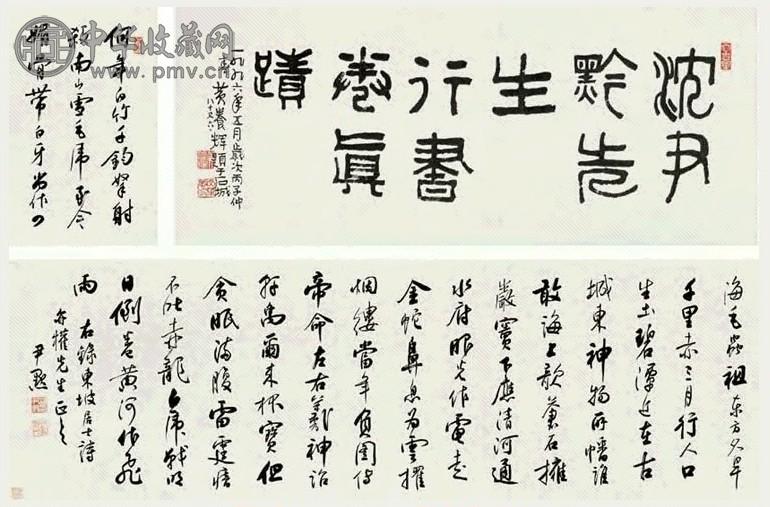 中华收藏网
www.pmv.cn
沈尹
默先
生
行書
卷眞
蹟
一九九六年五月歲次丙子仲
黃養輝題于石城
八十又六
何年白竹千鈞弩射
殺南山雪毛虎至今
顱骨帶白牙尚作四
海毛蟲祖東方久旱
千里赤三月行人口
生土碧潭近在古
城東神物所蟠誰
敢侮上欹蒼石擁
巖竇下應清河通
水府眼光作電走
金蛇鼻息為雲擢
烟縷當年負圖傳
帝命左右羲神詔
軒禹爾來懷寶但
貪眠滿腹雷霆瘖
不吐赤龍白虎戰明
日倒卷黃河作飛
雨 右錄東坡居士詩
亦權先生正之
尹默